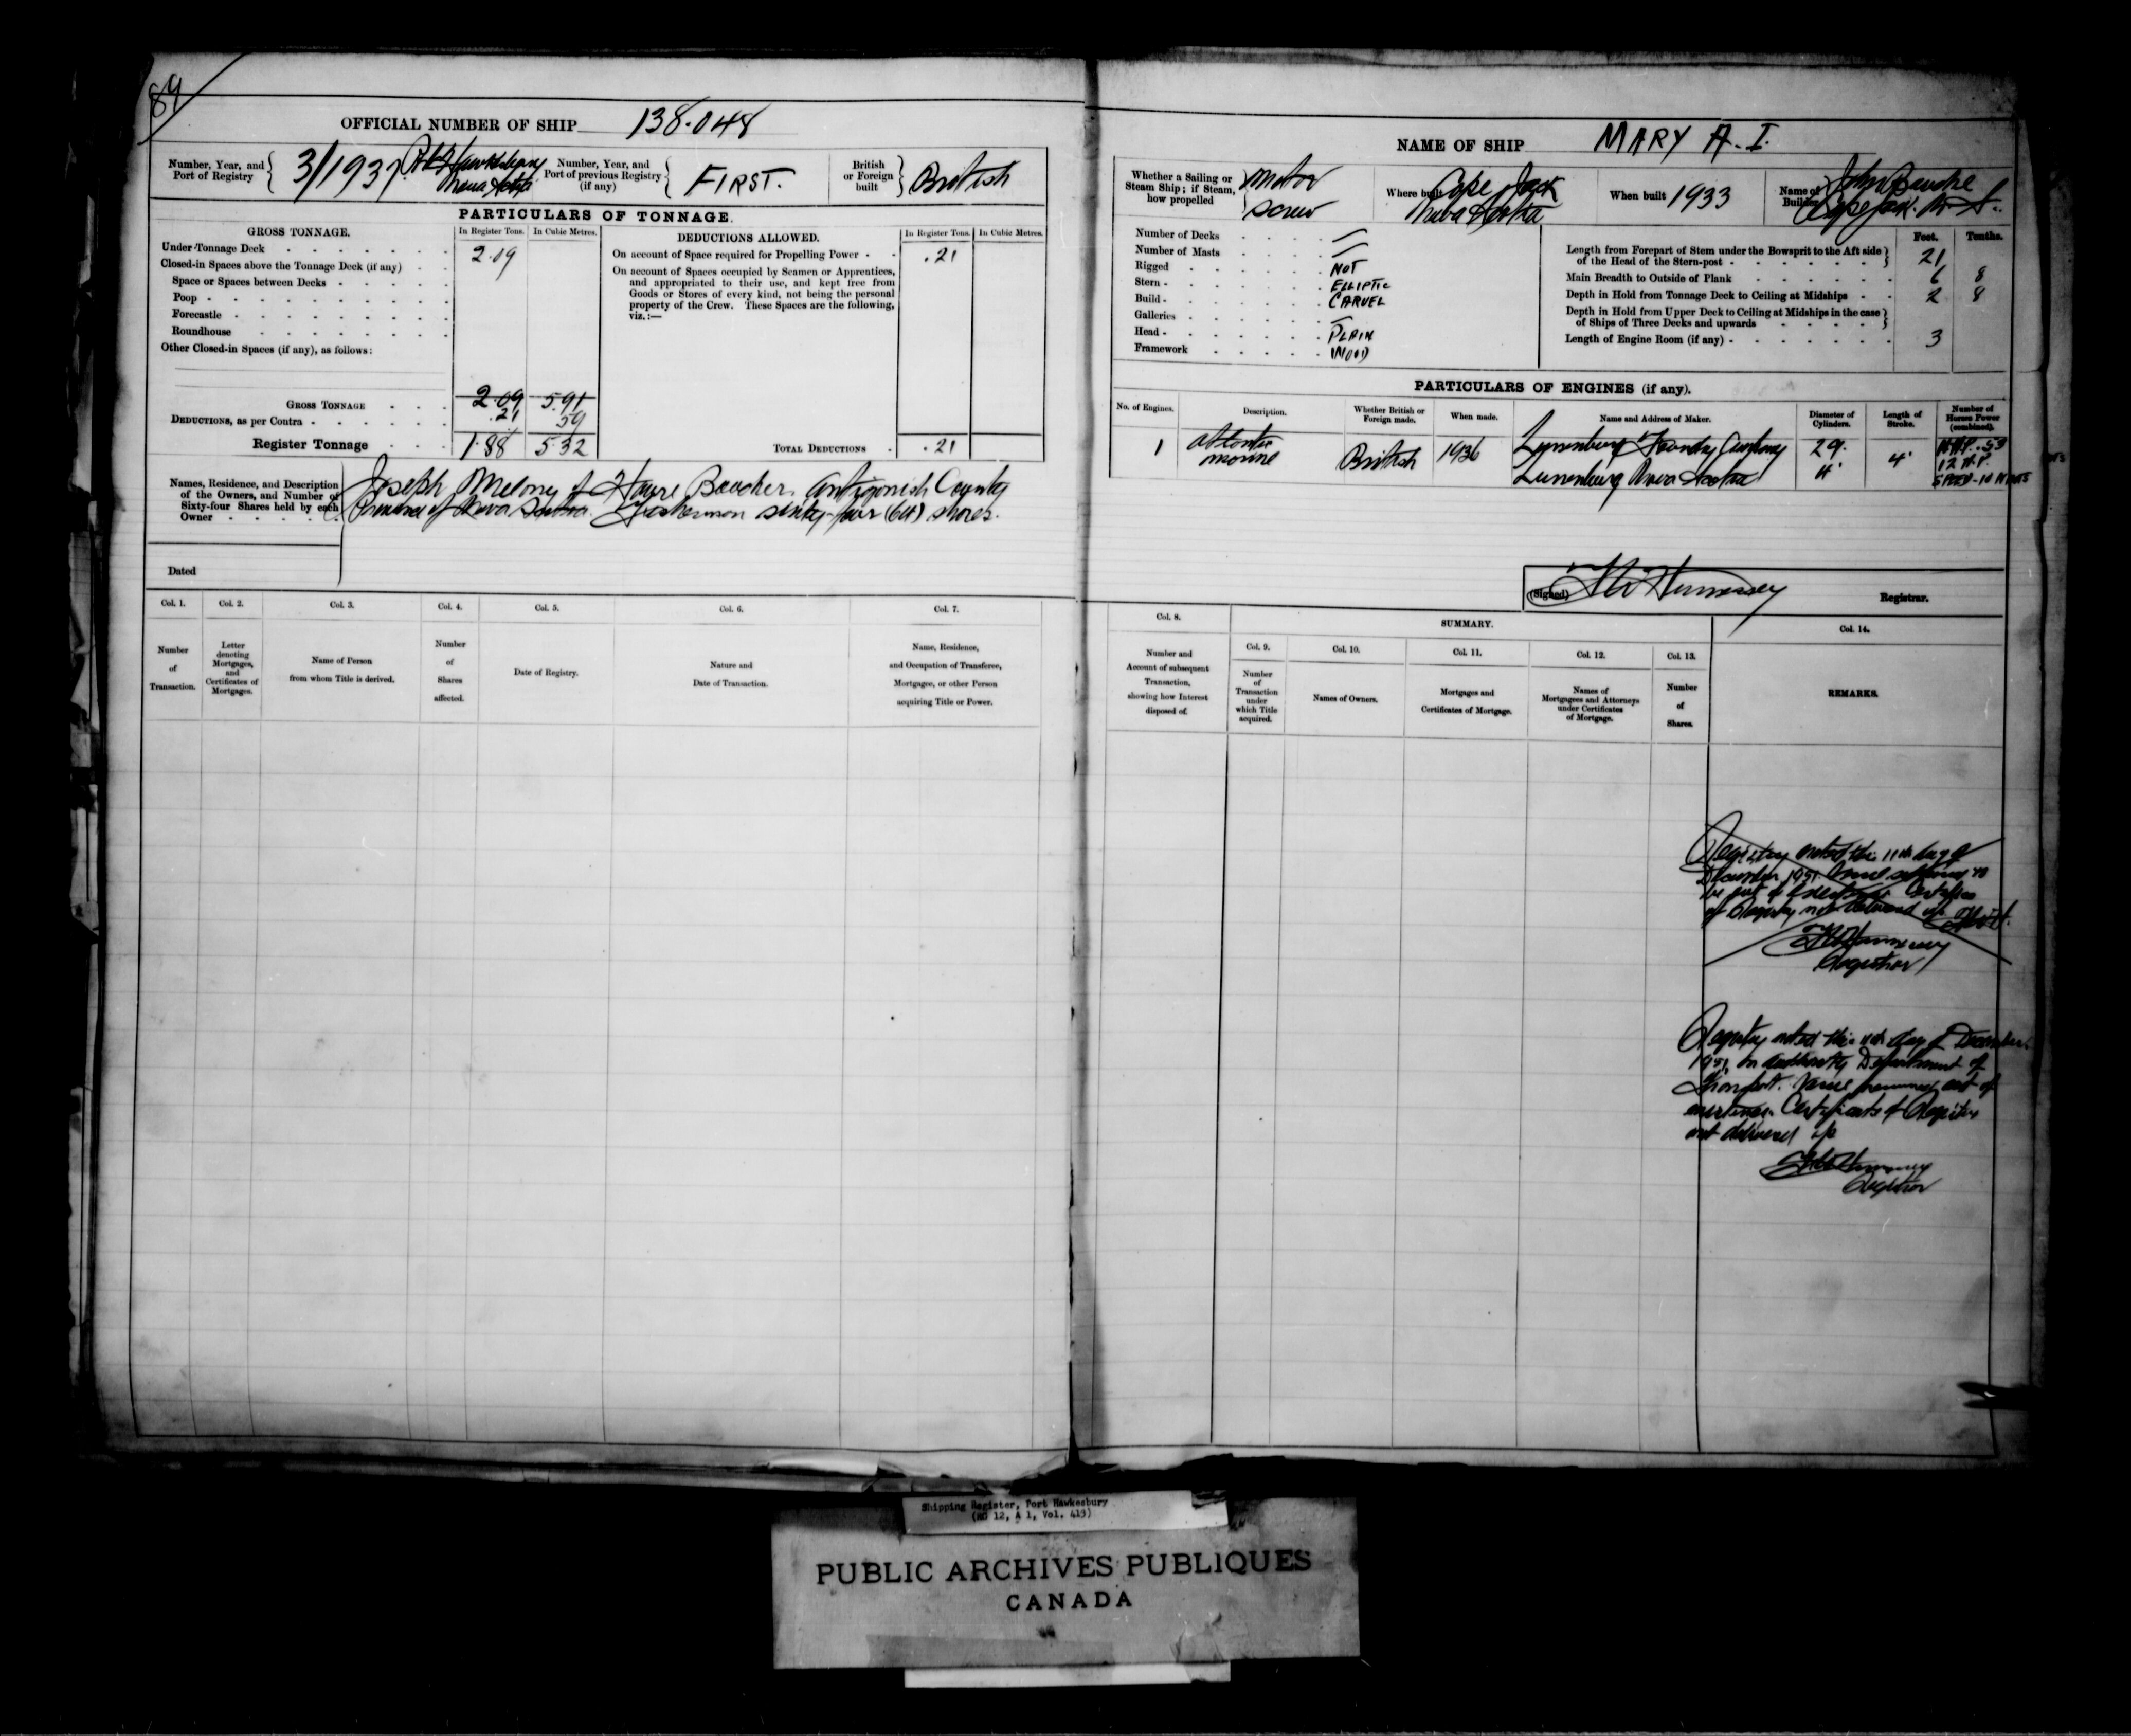 89
OFFICIAL NUMBER OF SHIP 138.048
Number, Year, and Port of Registry 3/1937. Port Hawkesbury Nova Scotia
Number, Year, and Port of previous Registry (if any) FIRST.
British or Foreign built British
PARTICULARS OF TONNAGE.
GROSS TONNAGE. In Register Tons. In Cubic Metres.
Under Tonnage Deck 2.09
Closed-in Spaces above the Tonnage Deck (if any)
Space or Spaces between Decks
Poop
Forecastle
Roundhouse
Other Closed-in Spaces (if any), as follows:
GROSS TONNAGE 2.09 5.91
DEDUCTIONS, as per Contra .21 59
Register Tonnage 1.88 5.32
DEDUCTIONS ALLOWED. In Register Tons. In Cubic Metres.
On account of Space required for Propelling Power .21
On account of Spaces occupied by Seamen or Apprentices,
and appropriated to their use, and kept free from
Goods or Stores of every kind, not being the personal
property of the Crew. These Spaces are the following,
viz.:—
TOTAL DEDUCTIONS .21
Names, Residence, and Description
of the Owners, and Number of
Sixty-four Shares held by each
Owner
Joseph Melony of Havre Boucher, Antigonish County
Province of Nova Scotia. Fisherman sixty-four (64) shares.
Dated
Col. 1. Col. 2. Col. 3. Col. 4. Col. 5. Col. 6. Col. 7.
Number of Transaction.
Letter denoting Mortgages, and Certificates of Mortgages.
Name of Person from whom Title is derived.
Number of Shares affected.
Date of Registry.
Nature and Date of Transaction.
Name, Residence, and Occupation of Transferee, Mortgagee, or other Person acquiring Title or Power.
NAME OF SHIP MARY A. I.
Whether a Sailing or Steam Ship; if Steam, how propelled Motor Screw
Where built Cape Jack Nova Scotia
When built 1933
Name of Builder John Cape Jack. N. S.
Number of Decks —
Number of Masts —
Rigged NOT
Stern ELLIPTIC
Build CARVEL
Galleries —
Head PLAIN
Framework WOOD
Feet. Tenths.
Length from Forepart of Stem under the Bowsprit to the Aft side
of the Head of the Stern-post 21
Main Breadth to Outside of Plank 6 8
Depth in Hold from Tonnage Deck to Ceiling at Midships 2 8
Depth in Hold from Upper Deck to Ceiling at Midships in the case
of Ships of Three Decks and upwards
Length of Engine Room (if any) 3
PARTICULARS OF ENGINES (if any).
No. of Engines. Description. Whether British or Foreign made. When made. Name and Address of Maker. Diameter of Cylinders. Length of Stroke. Number of Horses Power (combined).
1 Atlantic marine British 1936 Lunenburg Foundry Company Lunenburg Nova Scotia 4" 4" N.H.P. .53
12 H.P.
SPEED-10 KNOTS
(Signed) Hennessey Registrar.
Col. 8.
Number and Account of subsequent Transaction, showing how Interest disposed of.
SUMMARY.
Col. 9. Col. 10. Col. 11. Col. 12. Col. 13. Col. 14.
Number of Transaction under which Title acquired.
Names of Owners.
Mortgages and Certificates of Mortgage.
Names of Mortgagees and Attorneys under Certificates of Mortgage.
Number of Shares.
REMARKS.
Registry noted this 11th day of
December 1951
be out of existence Certificate
of Registry not delivered up
Hennessey
Registrar
Registry noted this 11th day of December
1951 on authority Department of
Transport. Vessel presumed out of
existence. Certificate of Registry
not delivered up
Hennessey
Registrar
Shipping Register, Port Hawkesbury
(RG 12, A 1, Vol. 419)
PUBLIC ARCHIVES PUBLIQUES
CANADA